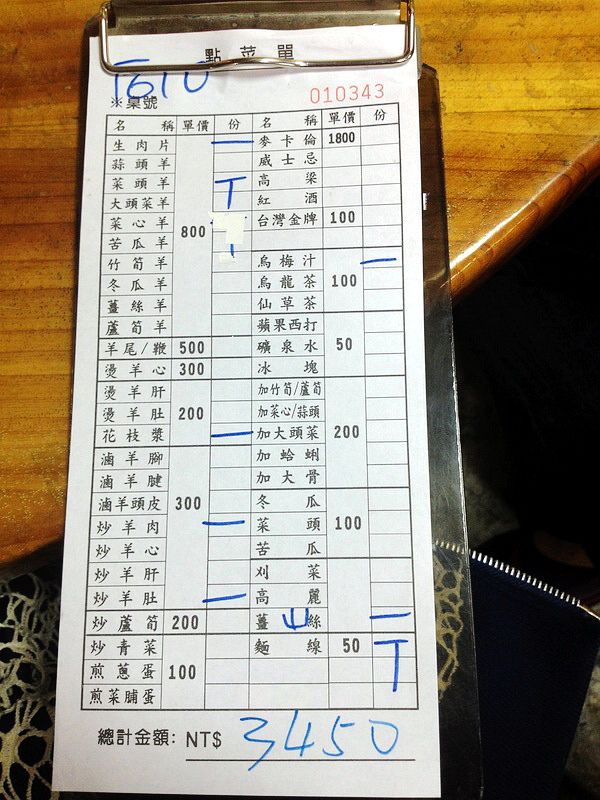 點菜單
※桌號 010343
名 稱 單價 份 名 稱 單價 份
生肉片 一 麥卡倫 1800
蒜頭羊 威士忌
菜頭羊 高粱
大頭菜羊 紅酒
菜心羊 800 台灣金牌 100
苦瓜羊
竹筍羊 烏梅汁 一
冬瓜羊 烏龍茶 100
薑絲羊 仙草茶
蘆筍羊 蘋果西打
羊尾/鞭 500 礦泉水 50
燙羊心 300 冰塊
燙羊肝 加竹筍/蘆筍
燙羊肚 200 加菜心/蒜頭
花枝漿 一 加大頭菜 200
滷羊腳 加蛤蜊
滷羊腱 加大骨
滷羊頭皮 300 冬瓜
炒羊肉 一 菜頭 100
炒羊心 苦瓜
炒羊肝 刈菜
炒羊肚 一 高麗
炒蘆筍 200 薑絲 一
炒青菜 麵線 50
煎蔥蛋 100
煎菜脯蛋
總計金額: NT$ 3450